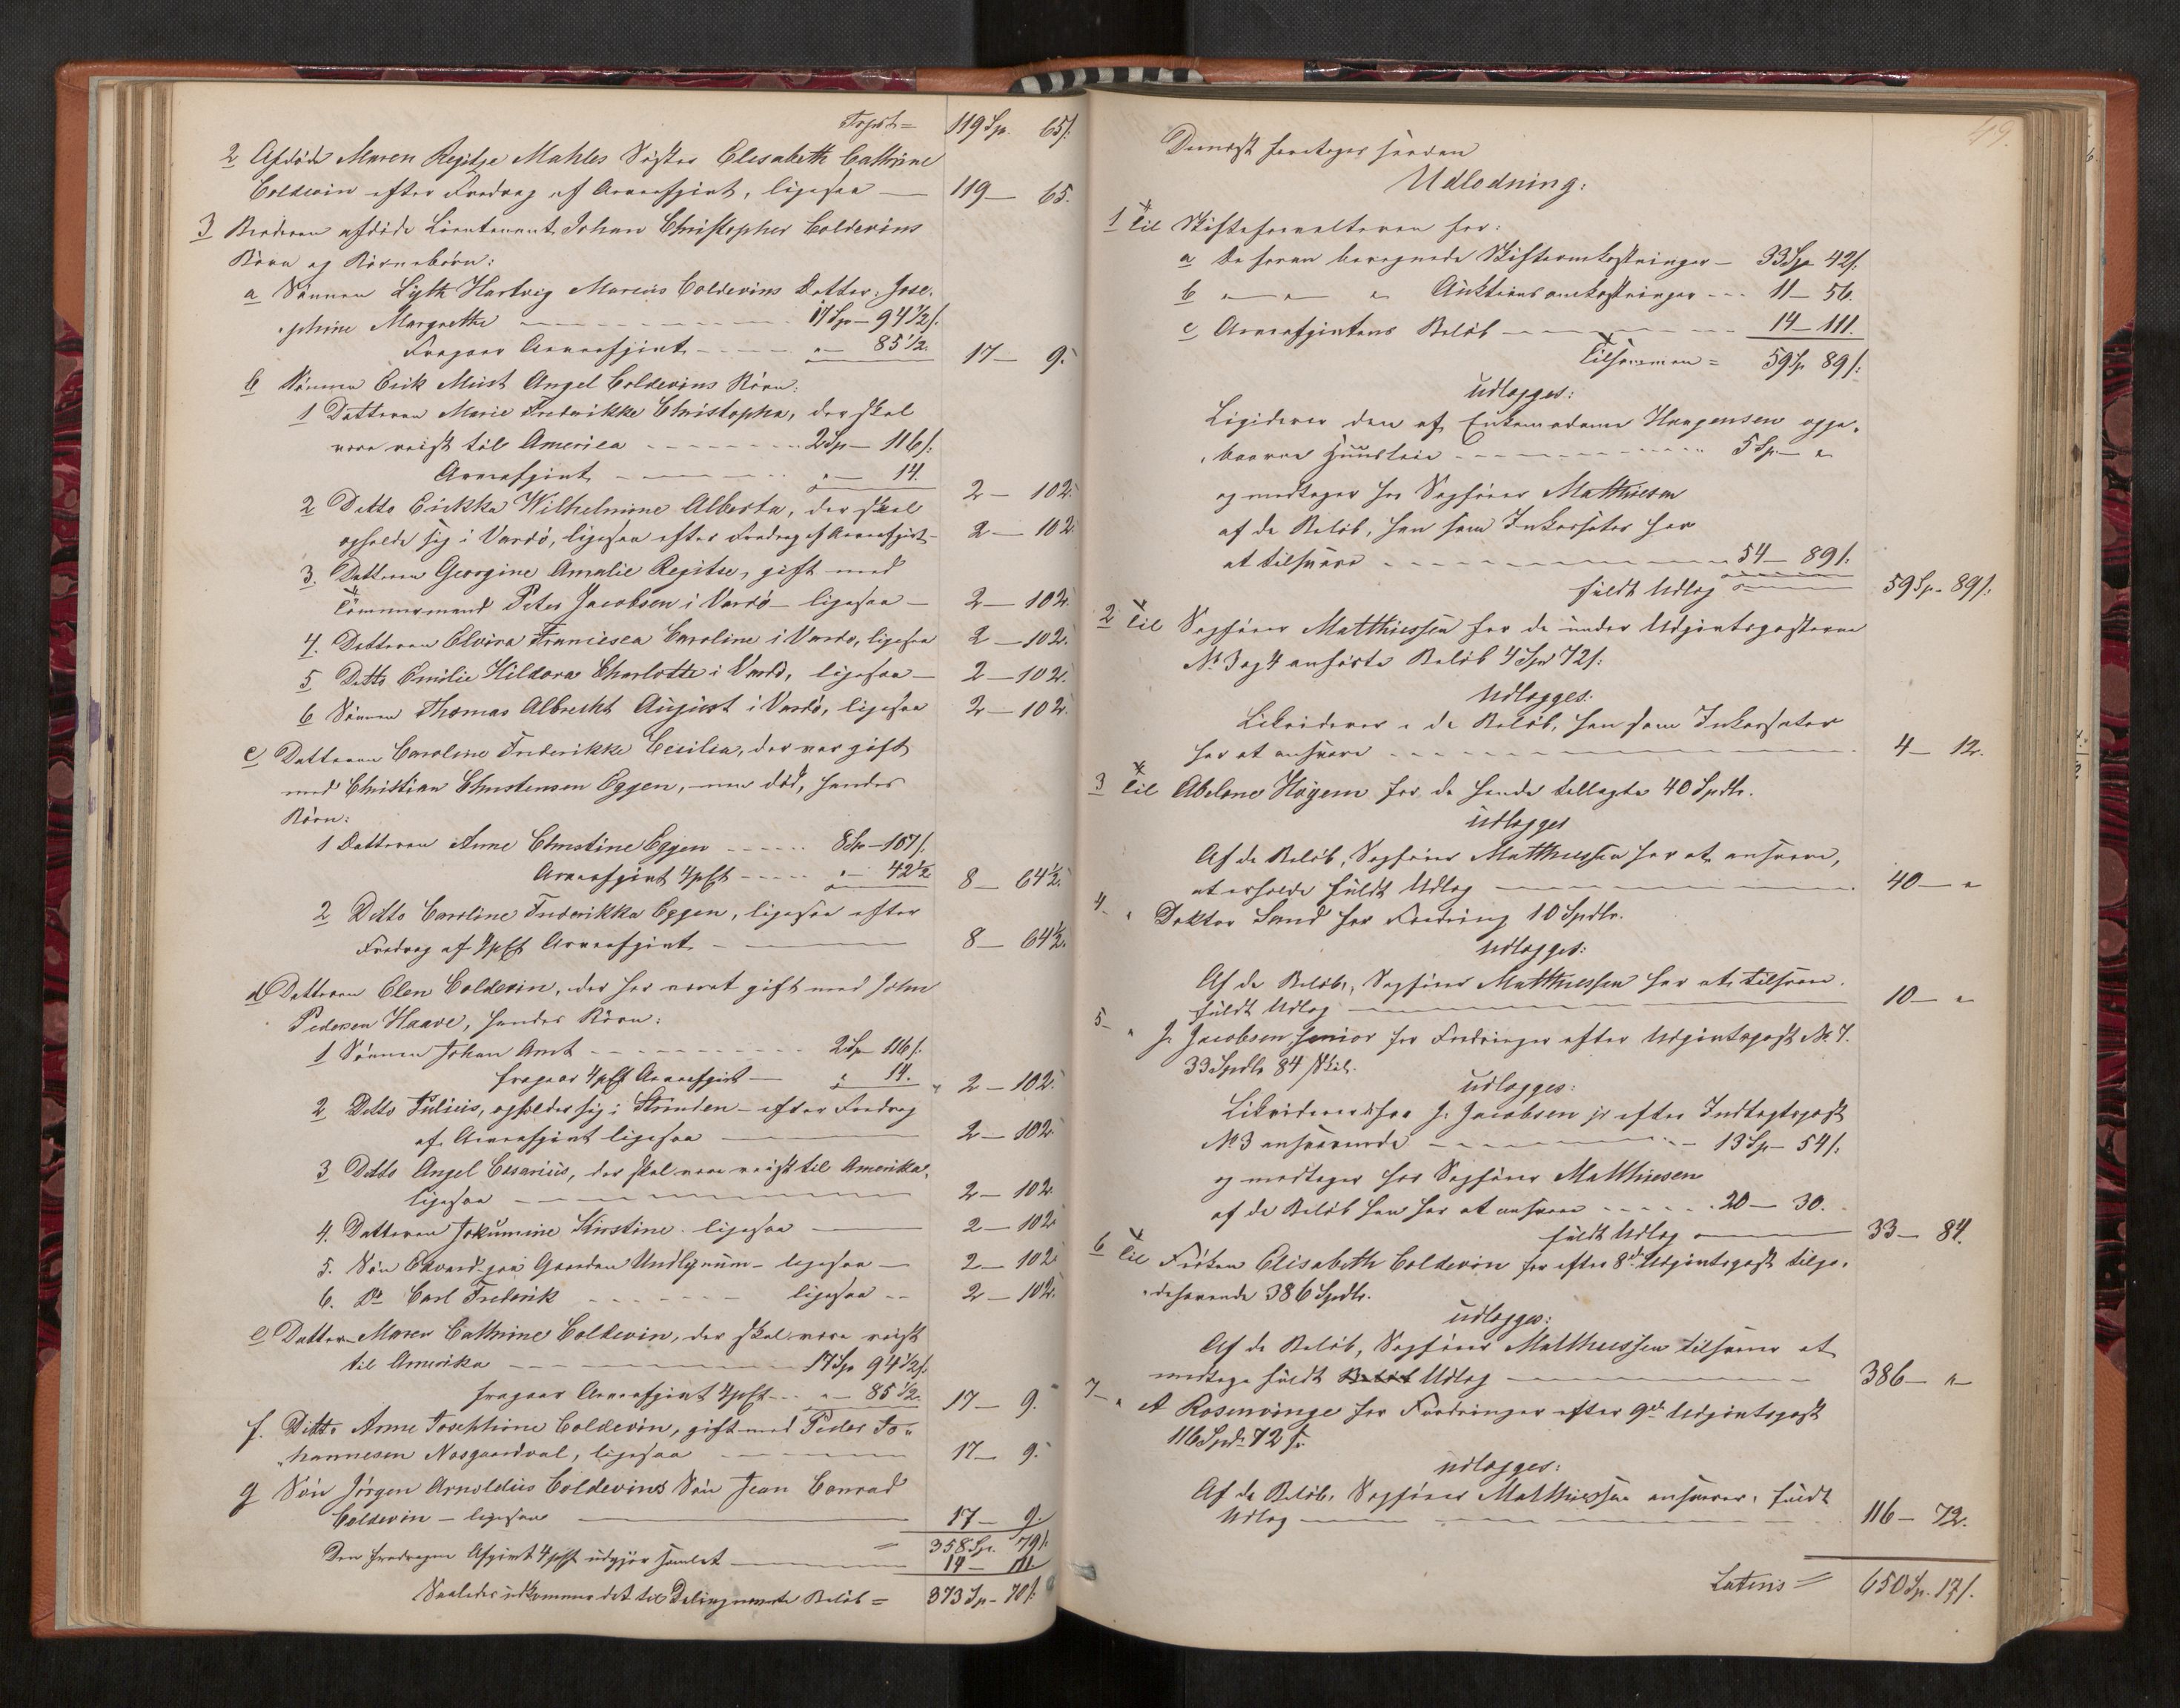 Transp.= 119 Sp. 65 s.
2 Afdøde Maren Regitze Mahles Søster Elisabeth Cathrine
Coldevin efter Fradrag af Arveafgivt, ligesaa — 119 — 65.
3 Broderen afdøde Lieutenant Johan Christopher Coldevins
Børn og Børnebørn:
a Sønnen Lyth Hartvig Marcus Coldevins Datter: Jose-
phine Margrethe — 17 Sp — 94 1/2 s.
Fragaar Arveafgivt — " — 85 1/2. 17 — 9.
b Sønnen Erik Must Angel Coldevins Børn:
1 Datteren Marie Frederikke Christopha, der skal
være reist til America — 2 Sp — 116 s.
Arveafgivt — " — 14. 2 — 102.
2 Ditto Erikka Wilhelmine Alberta, der skal
opholde sig i Vardö, ligesaa efter Fradrag af Arveafgivt — 2 — 102.
3. Datteren Georgine Amalie Regitse, gift med
Tømmermand Peter Jacobsen i Vardö — ligesaa — 2 — 102.
4. Datteren Elvira Francisca Caroline i Vardö, ligesaa 2 — 102.
5 Ditto Emilie Hildora Charlotte i Vardö, ligesaa — 2 — 102.
6 Sønnen Thomas Albrecht August i Vardö, ligesaa 2 — 102.
c Datteren Caroline Frederikke Cecilia, der var gift
med Christian Christensen Eggen, men død, hendes
Børn:
1 Datteren Anne Christine Eggen — 8 Sp — 107 s.
Arveafgivt 4 pCt — " — 42 1/2 8 — 64 1/2.
2 Ditto Caroline Frederikka Eggen, ligesaa efter
Fradrag af 4 pCt Arveafgivt — 8 — 64 1/2.
d Datteren Elen Coldevin, der har været gift med John
Pedersen Haave, hendes Børn:
1 Sønnen Johan Arnt — 2 Sp — 116 s.
fragaar 4 pCt Arveafgivt — " 14. 2 — 102.
2 Ditto Julius, opholder sig i Strinden — efter Fradrag
af Arveafgivt ligesaa — 2 — 102.
3 Ditto Angel Cesarius, der skal være reist til Amerika,
ligesaa — 2 — 102.
4. Datteren Jokumine Kirstine. ligesaa — 2 — 102.
5. Søn Edvard paa Gaarden Undlynum — ligesaa — 2 — 102.
6. Do Carl Frederik — ligesaa — 2 — 102.
e Datter Maren Cathrine Coldevin, der skal være reist
til Amerika — 17 Sp 94 1/2 s.
fragaar Arveafgivt 4 pCt — " — 85 1/2. 17 — 9.
f. Ditto Anne Josephine Coldevin, gift med Peder Jo-
hannesen Nosgaardval, ligesaa — 17 — 9.
g Søn Jörgen Arnoldus Coldevins Søn Jean Conrad
Coldevin — ligesaa — 17 — 9.
= 358 Sp. 79 s.
Den fradragne Afgivt 4 pCt udgjør samlet — 14 — 111.
Saaledes udkommer det til Deling værende Beløb = 373 Sp — 70 s.
49.
Dernæst foretages saadan
Udlodning:
1 Til Skifteforvalteren for:
a De foran beregnede Skifteomkostninger — 33 Sp 42 s.
b " — " " Auktionsomkostninger — 11 — 56.
c Arveafgivtens Beløb — 14 — 111.
Tilsammen = 59 Sp 89 s.
udlægges:
Ligiderer den af Enkemadame Haagensen oppe-
baarne Huusleie — 5 Sp — "
og modtager hos Sagfører Matthiesen
af de Beløb, han som Inkassator har
at tilsvare — 54 — 89 s.
fuldt Udlæg — 59 Sp — 89 s.
2 Til Sagfører Matthiessen for de under Udgivtsposterne
No 3 og 4 anførte Beløb 4 Spd 12 s.
Udlægges:
Likviderer i de Beløb, han som Inkassator
har at ansvare — 4 — 12.
3 Til Abelone Höyem for de hende tillagte 40 Spdlr.
udlægges
Af de Beløb, Sagfører Matthiessen har at ansvare,
at erholde fuldt Udlæg — 40 — "
4 — " Doktor Sand for Fordring 10 Spdlr.
Udlægges:
Af de Beløb, Sagfører Matthiessen har at tilsvare.
fuldt Udlæg — 10 — "
5 — " J. Jacobsen senior for Fordringer efter Udgivtspost No 7.
33 Spdlr 84 Skil.
udlægges:
Likviderer hos J. Jacobsen jr efter Indtægtspost
No 3 ansvarende — 13 Sp — 54 s.
og modtager hos Sagfører Matthiesen
af de Beløb han har at ansvare — 20 — 30.
fuldt Udlæg — 33 — 84.
6 Til Frøken Elisabeth Coldevin for efter 8de Udgivtspost tilgo-
dehavende 386 Spdlr.
udlægges:
Af de Beløb, Sagfører Matthiessen tilsvarer at
modtage fuldt Beløb Udlæg — 386 — "
7 — " A Rosenvinge for Fordringer efter 9de Udgivtspost
116 Spd. 72 s.
udlægges:
Af de Beløb, Sagfører Matthiessen ansvarer, fuldt
Udlæg — 116 — 72.
Lateris = 650 Sp. 17 s.